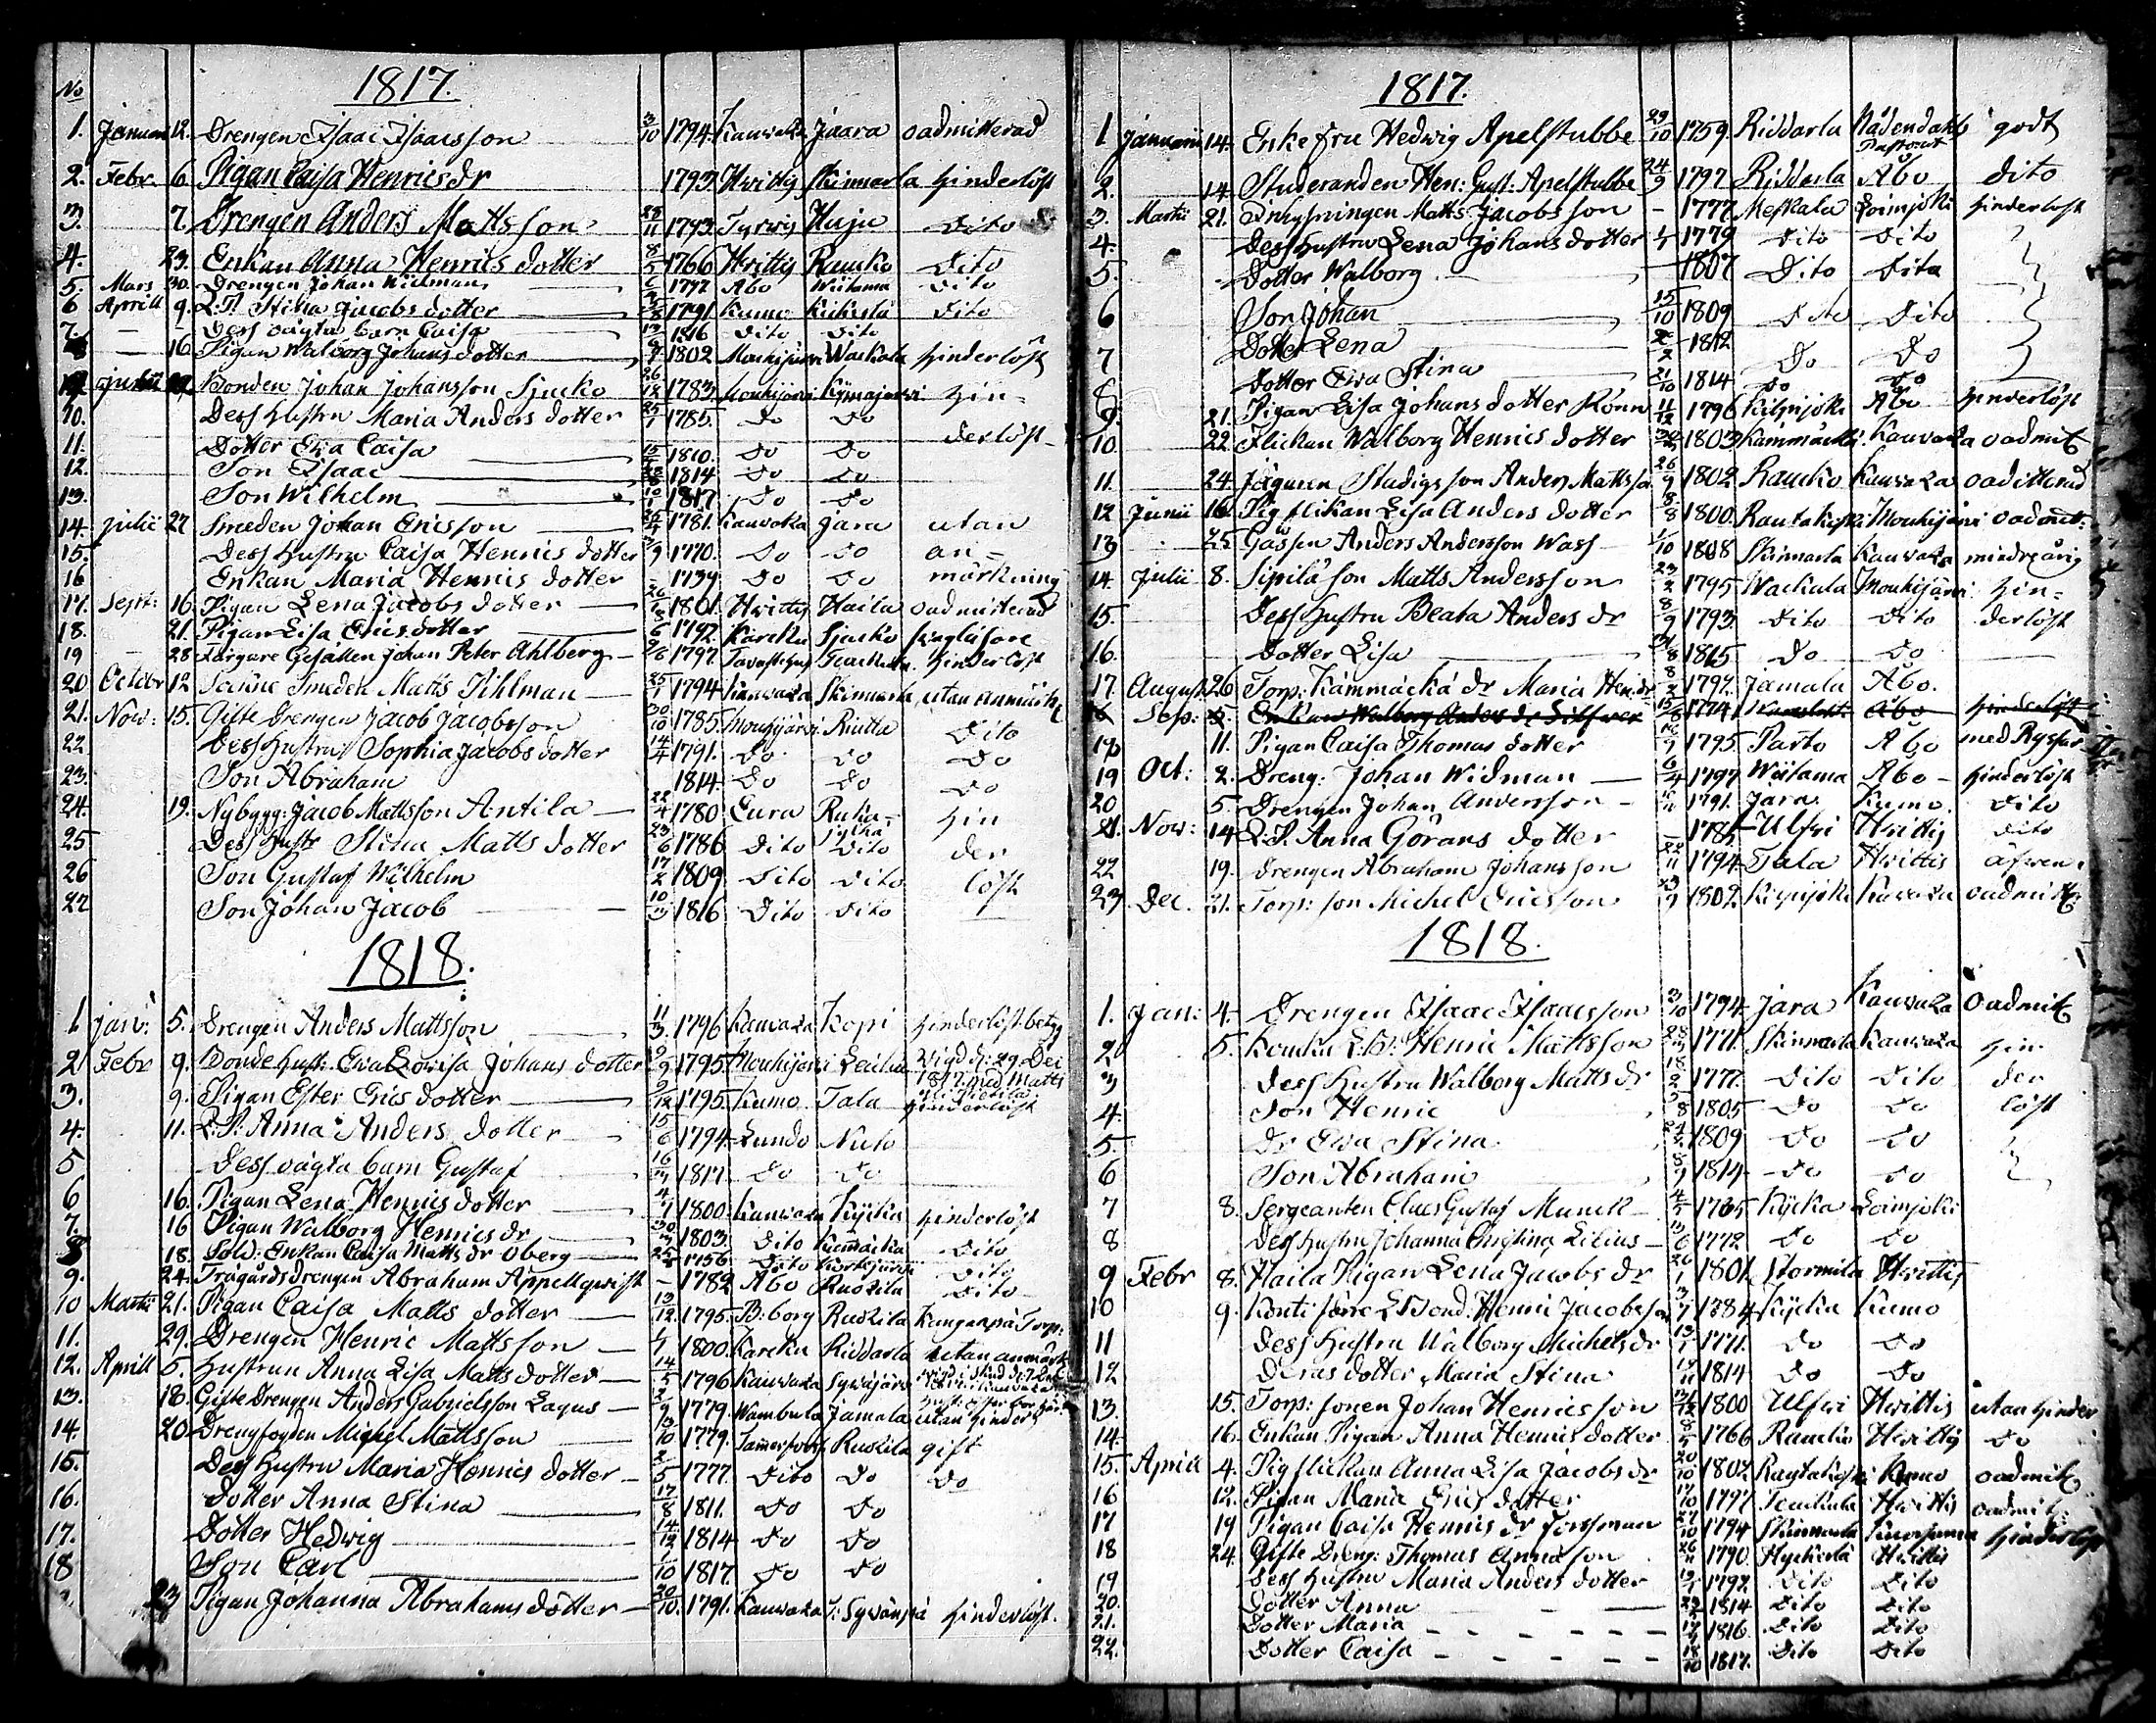 No
1817.
1. Januari 12. Drengen Isaac Isaacsson 3/10 1794. Kauvatza Jaara oadmitterad
2. Febr. 6 Pigan Caisa Henricsdr 1793. Hvittis Skinnarla hinderlöst
3. 7. Drengen Anders Mattsson 1793. Tyrvis Huju Dito
4. 23. Enkan Anna Henrics dotter 8/5 1766 Hvittis Raucko Dito
5. Mars 30. Drengen Johan Widman 1797 Abo Wiitama Dito
6 Aprill 9. L.P. Stina Jacobs dotter 1791 Kumo Dito
7. – – Dess oägta barn Caisa 1816 Dito Dito
— 16. Pigan Walborg Johans dotter 1802 Mouhijärvi Wackala hinderlöst
Julii Bonden Johan Johansson Sjucko 26/12 1783. Mouhijärvi hin=
10. Dess hustru Maria Anders dotter 1785. Do Do
11. Dotter Eva Caisa 1810. Do Do derlöst
12. Son Isaac 1814 Do Do
13. Son Wilhelm 10/1 1817. Do Do
14. Julii 27 Smeden Johan Ericsson 1781. Kauvatza Jara utan
15. Dess hustru Caisa Henrics dotter 1770. Do Do an=
16 Enkan Maria Henrics dotter – 1739 Do Do märkning
17. Sept: 16. Pigan Lena Jacobs dotter 1801. Hvittis Haila oadmitterad
18. 21. Pigan Lisa Erics dotter 1792. Karcku Sjucko
19 – 28 Färgare Gesällen Johan Peter Ahlberg 1797. Tavastehus hinderlöst
20 Octobr 12 Smeden Matts Pihlman 25/1 1794 Kauvatza Skinnarla utan anmärk
21. Nov: 15. Gifte Drengen Jacob Jacobsson 30/10 1785. Mouhijärvi Riutta Dito
22 Dess hustru Sophia Jacobs dotter 14/4 1791. Do Do Do
23. Son Abraham 1814. Do Do Do
24. 19. Nybygg: Jacob Mattsson Antila 22/4 1780 Eura Ruka= hin
25 Dess hustr Stina Matts dotter 23/6 1786 Dito Dito der
26 Son Gustaf Wilhelm 17/2 1809 Dito Dito löst
27 Son Johan Jacob 10/3 1816 Dito Dito
1818.
1. Janv: 5. Drengen Anders Mattsson 11/3 1796 Kauvatza Kopri hinderlöst betyg
2 Febr 9. Bonde hustr. Eva Lovisa Johans dotter 1795 Mouhijärvi Leiku Wigd d. 29. Dec
1817. med Matts
3. 9. Pigan Ester Erics dotter 9/12 1795. Kumo Tala hinderlöst
4. 11. L.P. Anna Anders dotter 15/6 1794 Lundo Nuto
5 Dess oägta barn Gustaf 16/3 1817. Do Do
6 16. Pigan Lena Henrics dotter 1800. Kauvatza hinderlöst
7. 16 Pigan Walborg Henrics dr 1803. Dito Kammacka Dito
8 18. Sold: Enkan Caisa Matts dr Öberg 1756 Dito Dito
9. 24. Trägårds drengen Abraham Appellqvist – 1782 Abo Ruskila Dito
10 Martii 21. Pigan Caisa Matts dotter 13/12 1795. B:borg Ruskila
11. 29. Drengen Henric Mattsson 1800. Karcku Riddarla utan anmärk
12. Aprill 5. Hustrun Anna Lisa Matts dotter 14/5 1796 Kauvatza
13. 18. Gifte Drengen Anders Gabrielsson Lagus 2/9 1779. Wambula Jamala utan hinder
14. 20 Drengfogden Michel Mattsson 13/10 1779. Ruskila gift
15. Dess hustru Maria Henrics dotter 1777. Dito Do Do
16. Dotter Anna Stina 17/8 1811. Do Do
17. Dotter Hedvig 14/12 1814 Do Do
18 Son Carl 1/10 1817. Do Do
23 Pigan Johanna Abrahams dotter 20/10 1791. Kauvatza hinderlöst.
1817.
1 Januarii 14. Enke fru Hedvig Apelstubbe 29/10 1759. Riddarla Nådendahls godt
Pastorat
2. 14. Studeranden Hen: Gust: Apelstubbe 24/9 1797. Riddarla Åbo Dito
3. Martii 21. Inhysningen Matts Jacobsson – 1777. Meskala Loimjoki hinderlöst
4. Dess hustru Lena Johans dotter 1779 Dito Dito
5. Dotter Walborg 1807. Dito Dito
6 Son Johan 15/10 1809 Dito Dito
7 Dotter Lena 1812 Do Do
8 Dotter Eva Stina 21/10 1814 Do Do
9. 21. Pigan Lisa Johans dotter Rönn 11/12 1796 Kilpijoki Åbo hinderlöst
10. 22 Flickan Walborg Henrics dotter 1803 Kammäcka Kauvatza oadmit
11. 24. Anders Mattsson 26/9 1802 Raucko Kauvatza oaditterad
12 Junii 16. Pig flikan Lisa Anders dotter 1800. Rautakoski Mouhijärvi oadmit:
13 25 Gässen Anders Andersson Wass 1/10 1808 Skinnarla Kauvatza mindreårig
14. Julii 8. Sipilä son Matts Andersson 23/2 1795 Wackala Mouhijärvi hin=
15. Dess hustru Beata Anders dr 8/9 1793 Dito Dito derlöst
16. Dotter Lisa 1815 Do Do
17. August 26 Torp: Kammäckä dr Maria Hen:dr 1792. Jamala Åbo.
Sep: 5. Enkan Walborg Anders dr Silfver 1774 Åbo hinderlöst
11. Pigan Caisa Thomas dotter 1795. Pärto Åbo med Ryssar
19 Oct: 2. Dreng: Johan Widman 6/4 1797 Wiitama Åbo hinderlöst
20 5. Drengen Johan Andersson 1791. Jara. Kumo. Dito
21. Nov: 14 L:P. Anna Görans dotter 1785 Ulfvi Hvittis Dito
22 19. Drengen Abraham Johansson 22/11 1794. Tala Hvittis äfven.
23 Dec. 21. Torp: son Michel Ericsson 1802. Kilpijoki Kavatza oadmitt
1818.
1. Jan: 4. Drengen Isaac Isaacsson 3/10 1794. Jara Kauvatza Oadmit
2 5. Henric Mattsson 1771. Skinnarla Kauvatza hin
3 Dess hustru Walborg Matts dr 18/2 1777. Dito Dito der
4. Son Henric 1805 Do Do löst
5. Dr Eva Stina 1809 Do Do
6 Son Abraham 1814 Do Do
7 8. Sergeanten Claes Gustaf Munck 1765 Loimjoki
8 Dess hustru Johanna Christina Lilius 1772 Do Do
9 Febr 8. Haila Pigan Lena Jacobs dr 26/1 1801. Stormila Hvittis
10 9. Henric Jacobsson 1784 Kumo
11 Dess hustru Walborg Michels dr 1771. Do Do
12 Deras dotter Maria Stina 1814 Do Do
13. 15. Torp: sonen Johan Henricsson 1800 Ulfvi Hvittis utan hinder
14. 16. Enkan Pigan Anna Henrics dotter 8/5 1766 Raucko Hvittis Do
15. Aprill 4. Pig flickan Anna Lisa Jacobs dr 20/10 1802 Kumo oadmit
16 12. Pigan Maria Erics dotter 17/10 1797 Hvittis oadmit:
17 19 Pigan Caisa Henrics dr Forssman 27/10 1794 Skinnarla hinderlöst
18 24 Gifte Dreng: Thomas Annäson 26/11 1790. Hvittis
19 Dess hustru Maria Anders dotter 1792 Dito Dito
20. Dotter Anna 1814 Dito Dito
21. Dotter Maria 1816. Dito Dito
22. Dotter Caisa 18/10 1817. Dito Dito